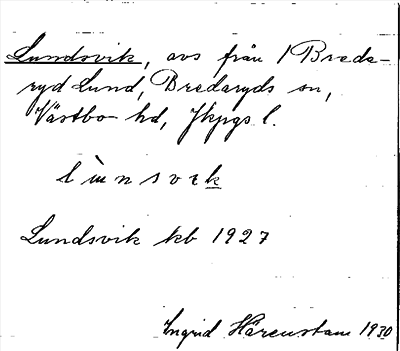 Lundsvik, avs från 1 Breda-
ryd Lund, Bredaryds sn,
Västbo hd, Jkpgs l.
Lundsvik kb 1927
Ingrid Härenstam 1930